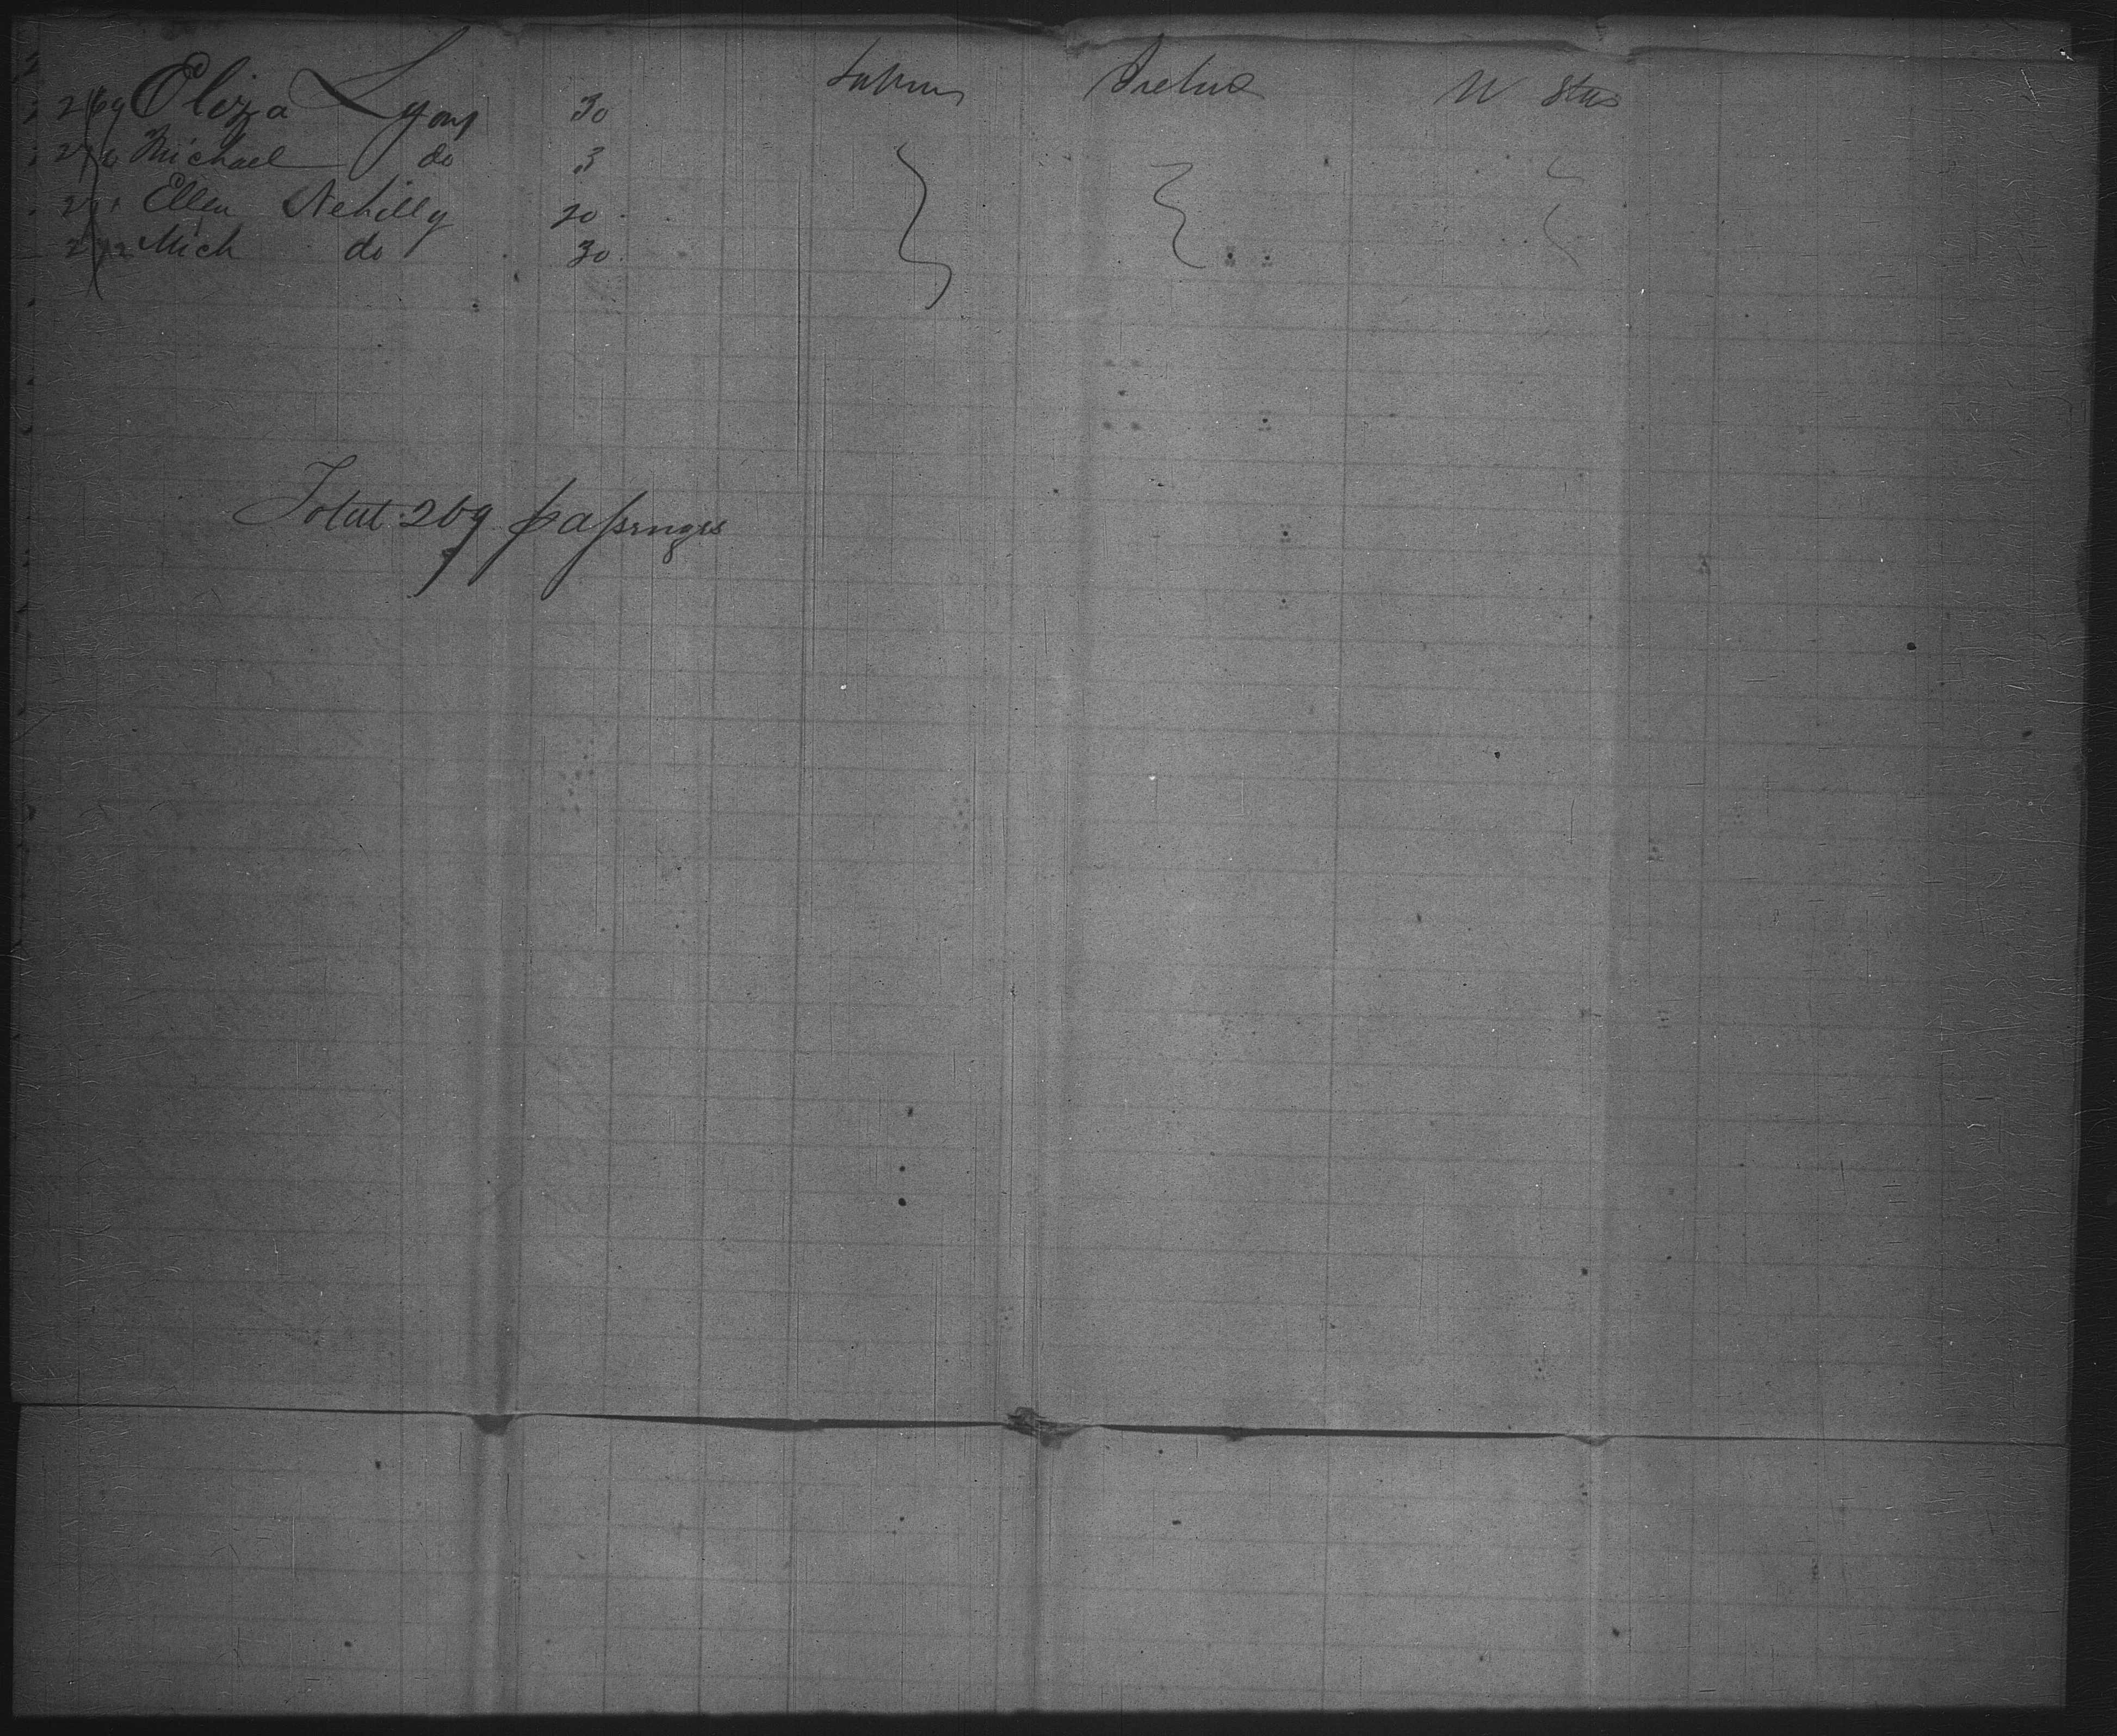 269 Eliza Lyons 30 Labour Ireland U Stas
270 Michael do 3
271 Ellen Nehilly 20
272 Mich do 30
Total 269 passengers